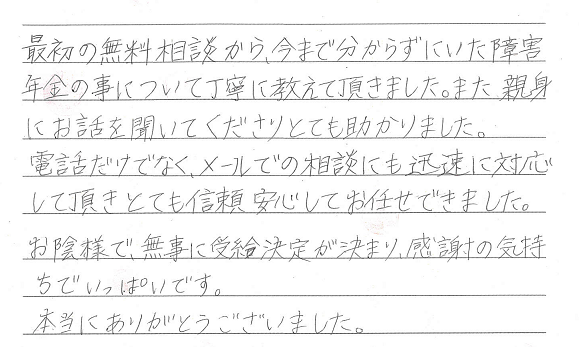 最初の無料相談から、今まで分からずにいた障害
年金の事について丁寧に教えて頂きました。また親身
にお話を聞いてくださりとても助かりました。
電話だけでなく、メールでの相談にも迅速に対応
して頂きとても信頼安心してお任せできました。
お陰様で、無事に受給決定が決まり、感謝の気持
ちでいっぱいです。
本当にありがとうございました。